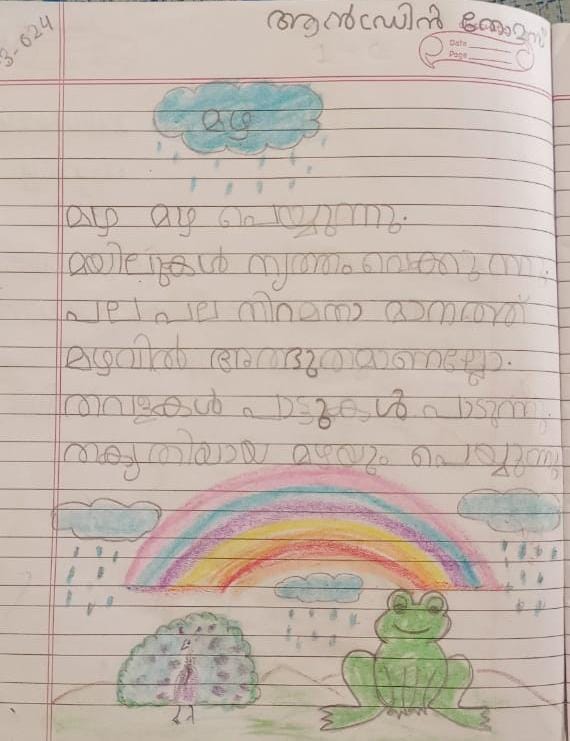 3-624
ആൻഡ്രിൻ തോമസ്
Date
Page
മഴ
മഴ മഴ പെയ്യുന്നു.
മയിലുകൾ നൃത്തം വെക്കുന്നു.
പല പല നിറമന്നാ മാനത്ത്
മഴവിൽ അത്ഭുതമാണല്ലോ.
തവളകൾ പാട്ടുകൾ പാടുന്നു.
തകൃതിയായ മഴയും പെയ്യുന്നു